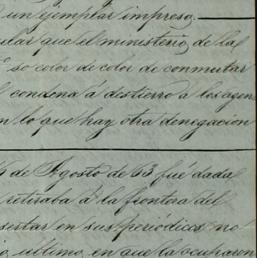 un ejemplar impreso
que el ministerio de la
so color de color de conmutar
condena á destierro á los agen
n lo que hay otra denegacion
de Agosto de 63 fué dada
retiraba á la frontera del
sertar en sus periódicos no
último, en que la ocuparon